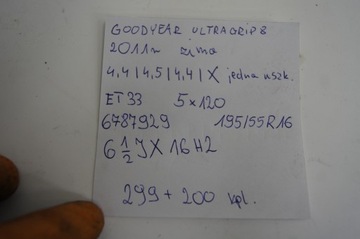 GOODYEAR ULTRAGRIP 8
2011r zima
4,4 | 4,5 | 4,4 | X jedna uszk.
ET 33 5x120
6787929 195/55R16
6 1/2 J X 16 H2
299 + 200 kpl.